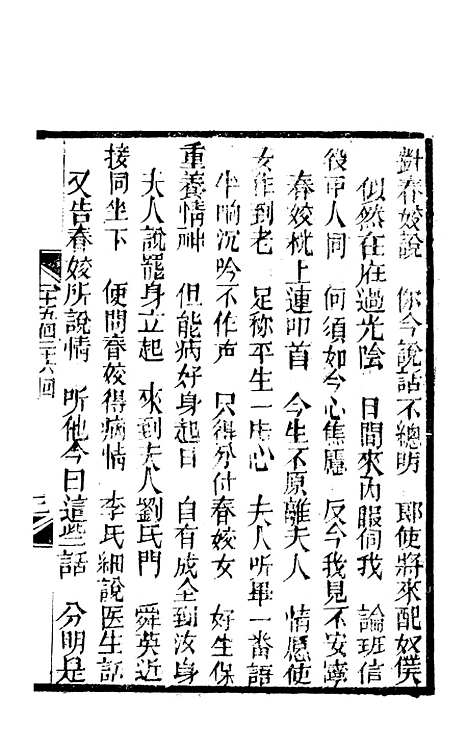 對春姣說　你今說話不總明　郎使將來配奴僕
似然在府過光陰　日間來內服伺我　論班信
役市人同　何須如今心焦慮　反令我見不安寧
春姣枕上連叩首　今生不原離夫人　情愿使
女作到老　足称平生一片心　夫人听畢一番語
半晌沉吟不作声　只得分付春姣女　好生保
重養情神　但能病好身起日　自有成全到汝身
夫人說罷身立起　來到夫人劉氏門　舜英近
接同坐下　便問春姣得病情　李氏細說医生話
又告春姣所說情　听他今日這些話　分明是
二十五回二十六回
三